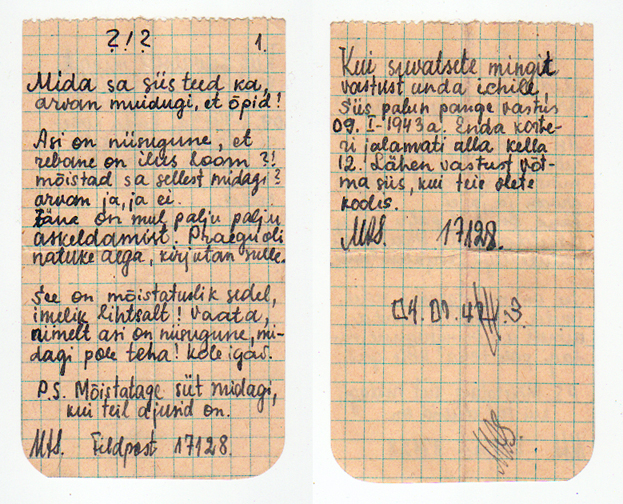 ?!?
1.
Mida sa siis teed ka,
arvan muidugi, et õpid!
Asi on niisugune, et
rebane on ilus loom?!
mõistad sa sellest midagi?
arvan ja, ja ei.
Täna on mul palju palju
askeldamist. Praegu oli
natuke aega, kirjutan sulle.
See on mõistatuslik sedel,
imelik lihtsalt! Vaata,
nimelt asi on niisugune, mi-
dagi pole teha! kole igav.
P.S. Mõistatage siit midagi,
kui teil ajund on.
Feldpost 17128.
Kui suvatsete mingit
vastust anda
siis palun pange vastus
09. I-1943a. Enda korte-
ri jalamati alla kella
12. Lähen vastust võt-
ma siis, kui teie olete
kodis.
17128.